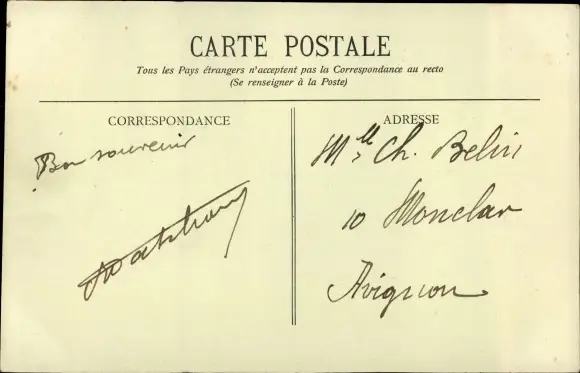 CARTE POSTALE
Tous les Pays étrangers n'acceptent pas la Correspondance au recto
(Se renseigner à la Poste)
CORRESPONDANCE
Bon souvenir
ADRESSE
Mlle Ch. Belin
10 Monclar
Avignon